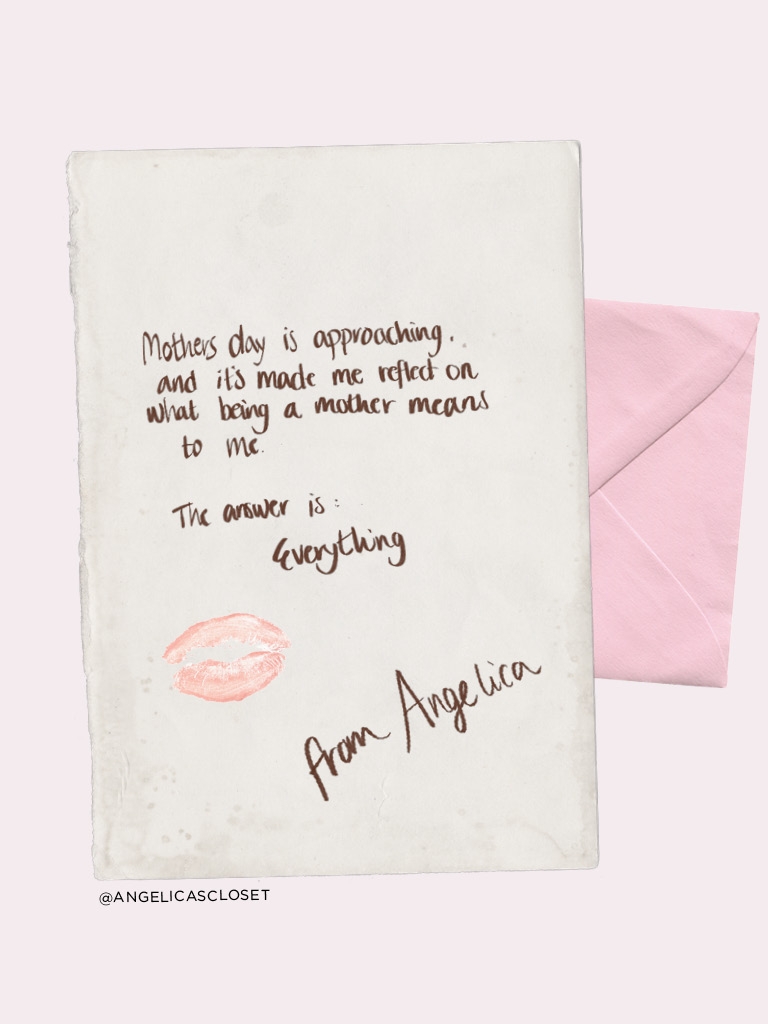 Mothers day is approaching.
and it's made me reflect on
what being a mother means
to me.
The answer is:
Everything
from Angelica
@ANGELICASCLOSET